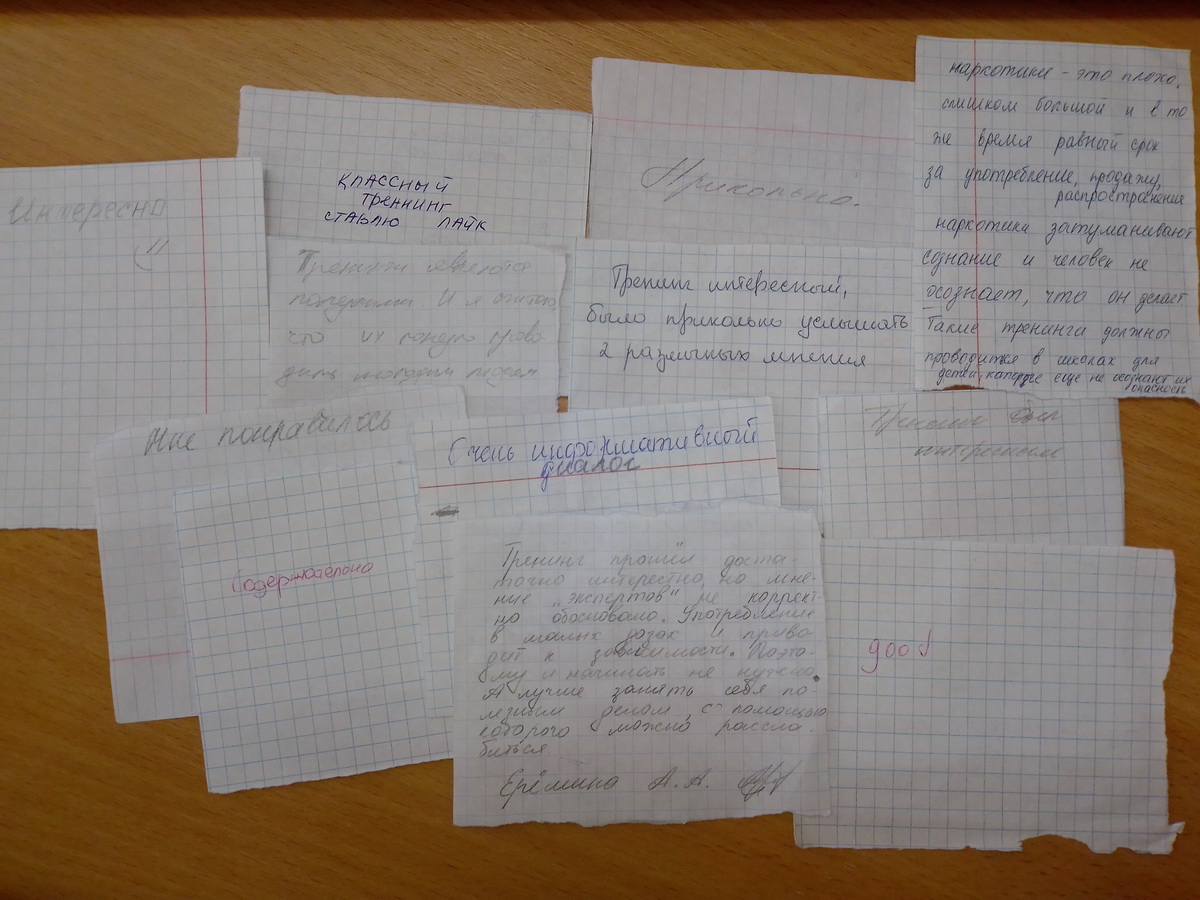 Интересно
КЛАССНЫЙ
ТРЕННИНГ
СТАВЛЮ ЛАЙК
Прикольно.
наркотики - это плохо.
слишком большой и в то
же время равный срок
за употребление, продажу,
распространение
наркотики затуманивают
сознание и человек не
осознает, что он делает
Такие тренинги должны
проводится в школах для
детей, которые еще не осознают их
опасность
И я считаю
что их
Тренинг интересный,
было прикольно услышать
2 различных мнения
Мне понравилось
Очень информативный
диалог
Тренинг был
интересным
Содержательно
Тренинг прошёл доста-
точно интерестно, но мне-
ние „экспертов" не коррект-
но обосновано. Употребление
в малых дозах и приво-
дит к зависимости. Поэто-
му и начинать не нужно.
А лучше занять себя по-
лезным делом, с помощью
которого можно рассла-
биться
Ерёмина А.А.
good